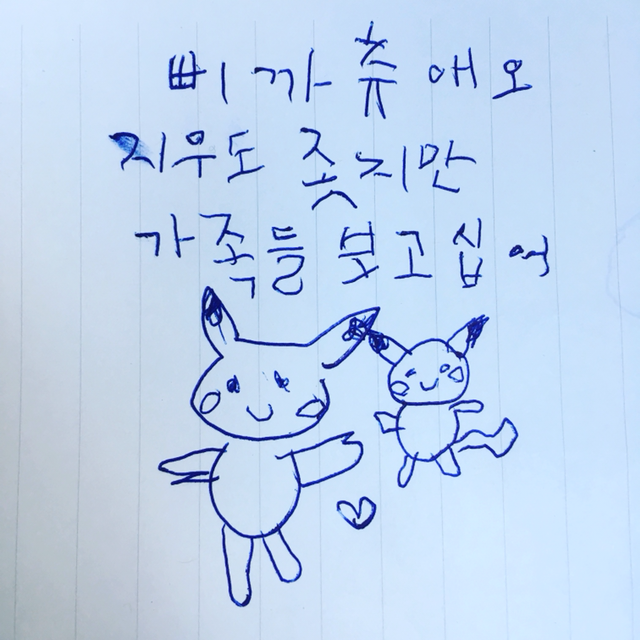 삐까츄애오
지우도 좃지만
가족들 보고십어